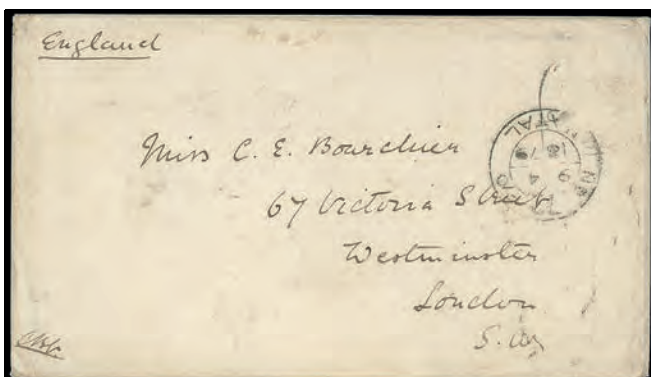 England
Miss C. E. Bourchier
67 Victoria Street
Westminster
London
S. W.